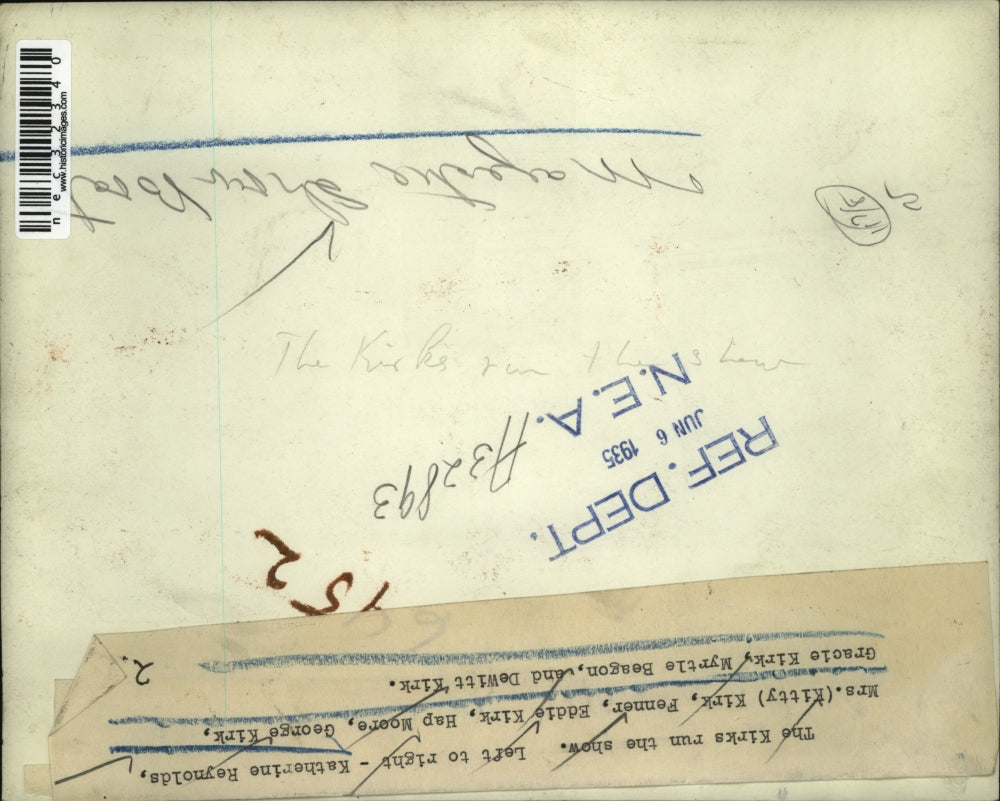 n e c 3 2 3 4 0
www.historicimages.com
Majestic Show Boat
The Kirks run the show
N.E.A.
JUN 6 1935
REF. DEPT.
A32893
152
The Kirks run the show. Left to right - Katherine Reynolds,
Mrs. (Kitty) Kirk, Fenner, Eddie Kirk, Hap Moore, George Kirk,
Gracie Kirk, Myrtle Beagon, and DeWitt Kirk.
2.